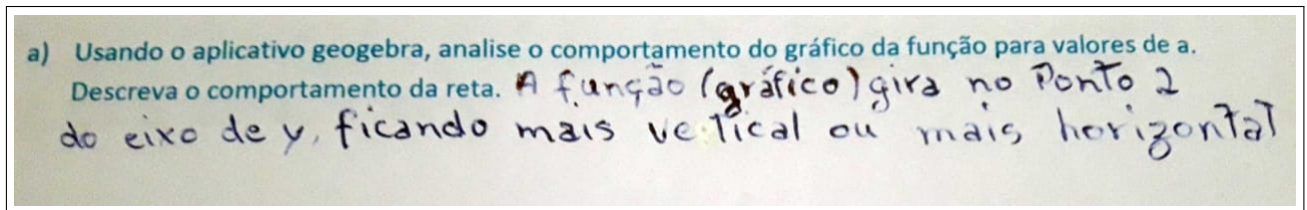 a) Usando o aplicativo geogebra, analise o comportamento do gráfico da função para valores de a.
Descreva o comportamento da reta. A função (gráfico) gira no Ponto 2
do eixo de y, ficando mais vertical ou mais horizontal